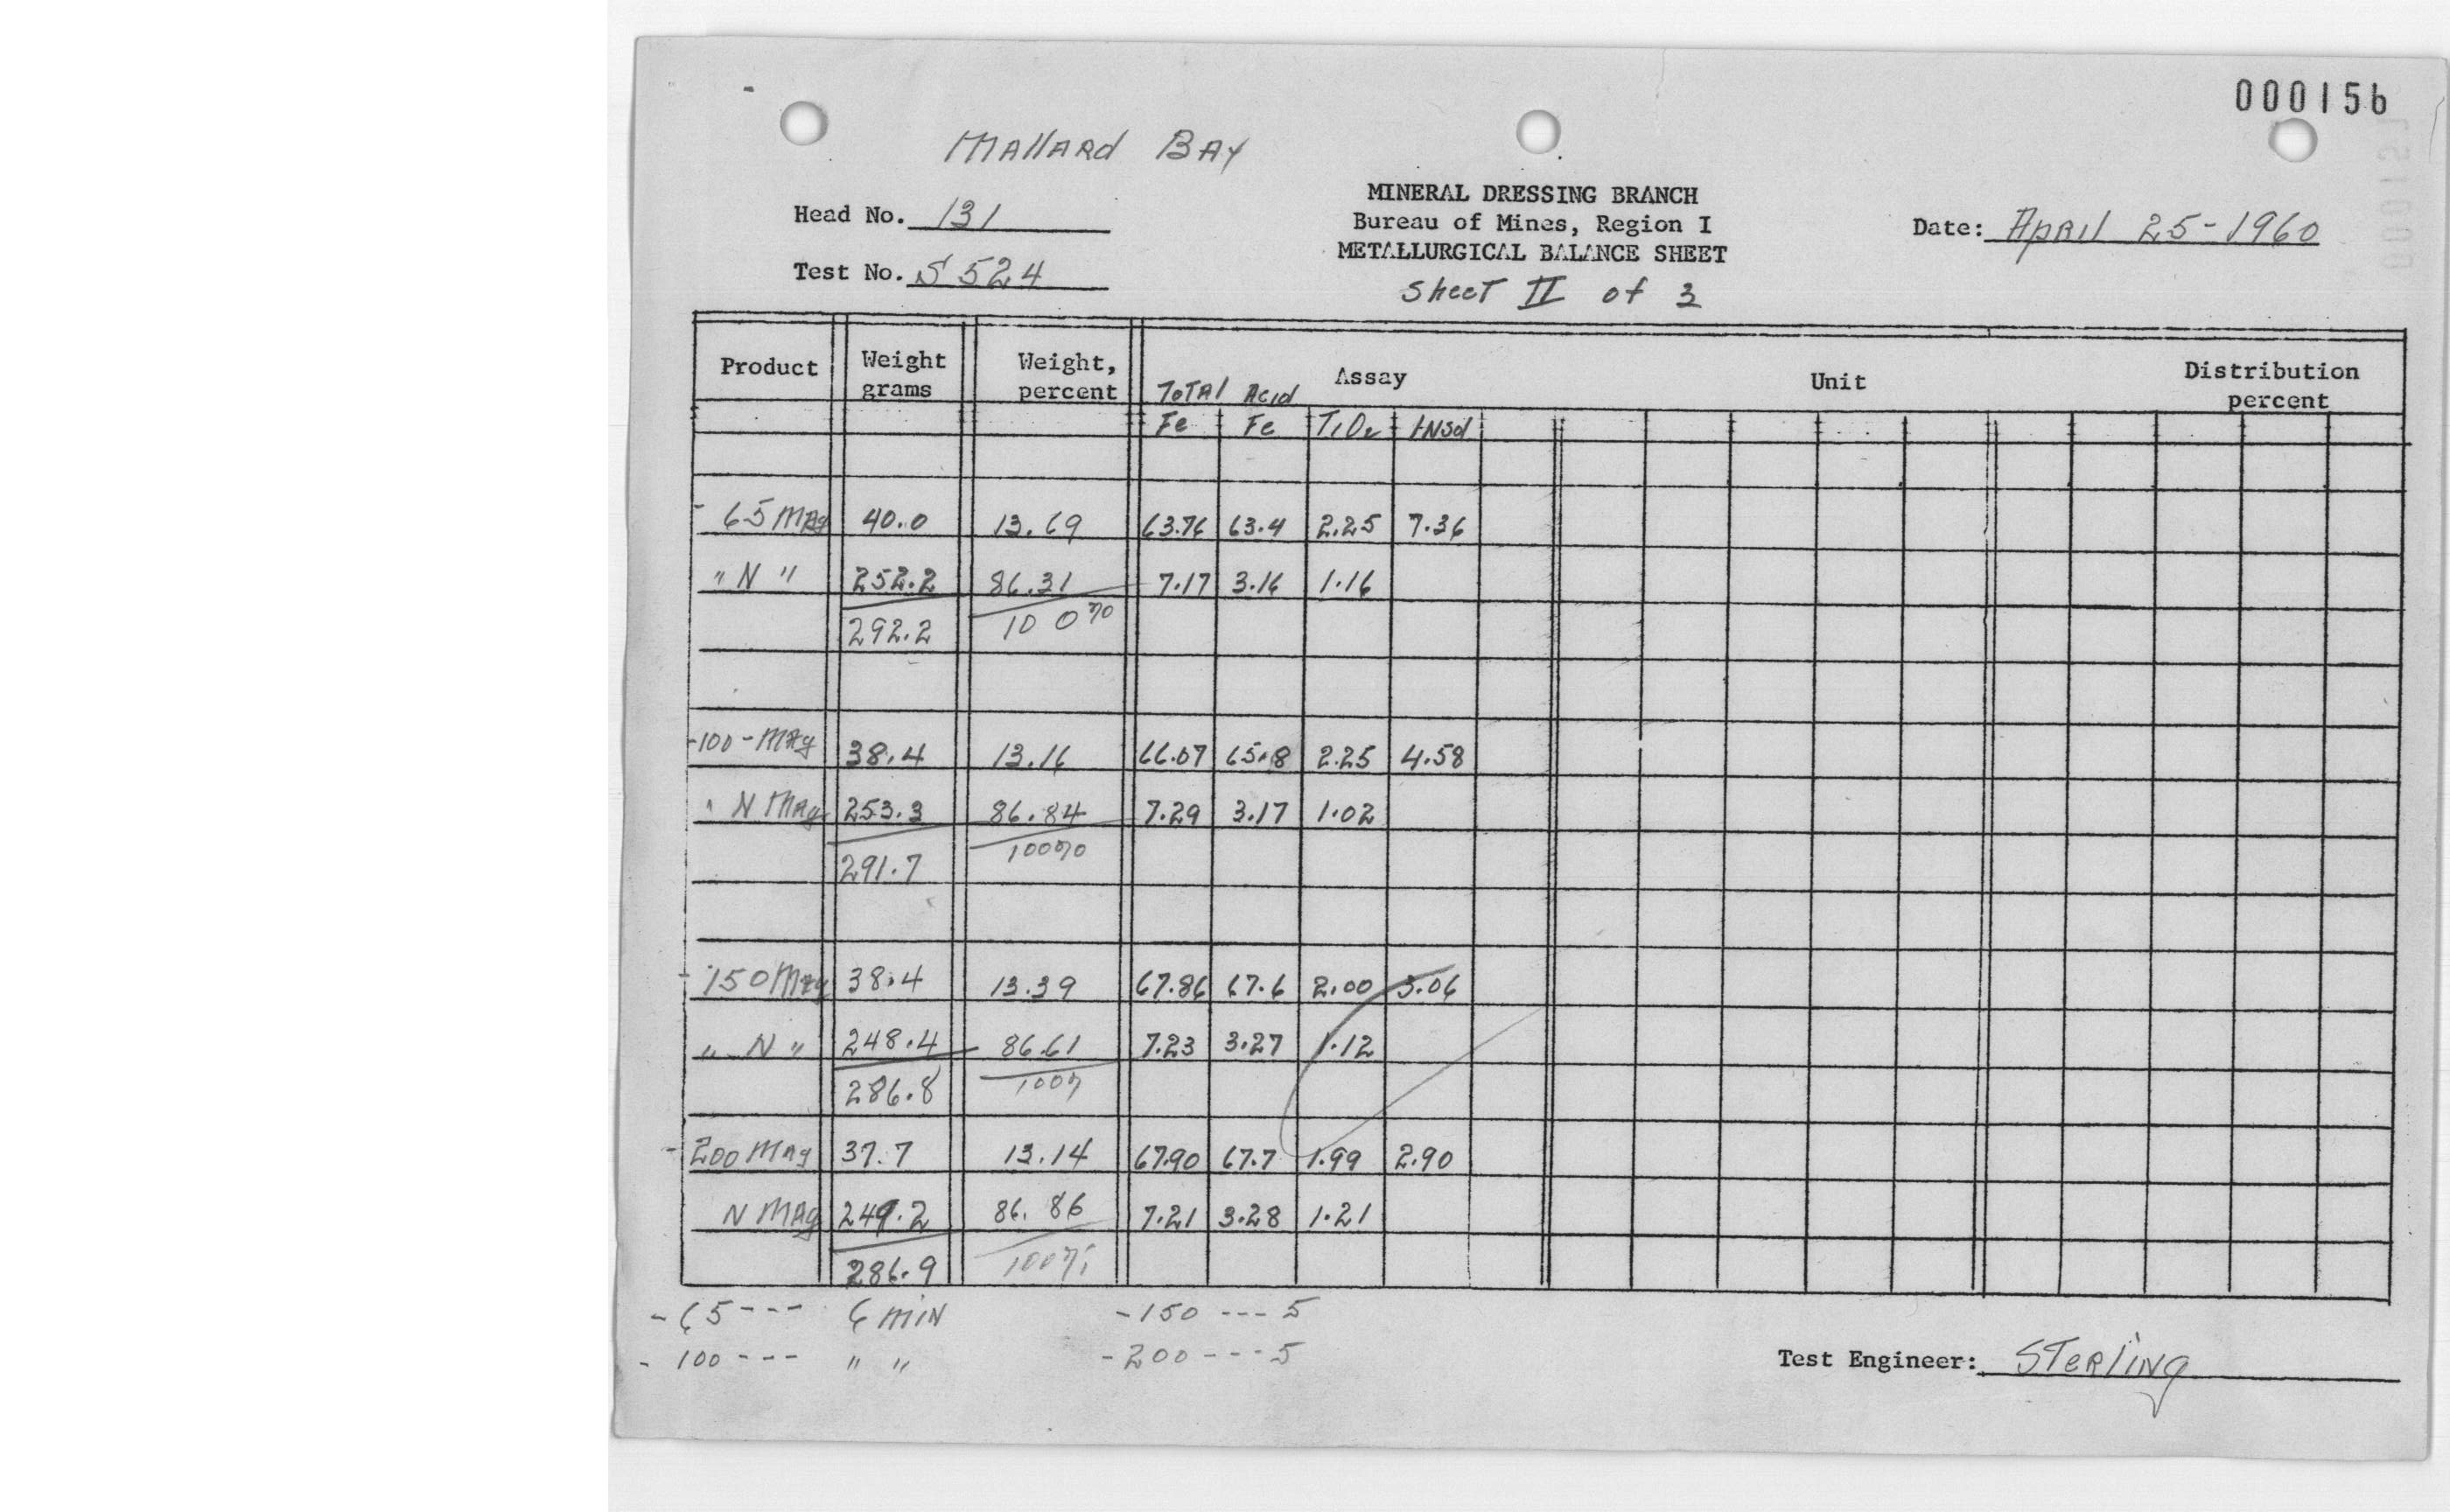 000156
Mallard Bay
MINERAL DRESSING BRANCH
Head No. 131
Bureau of Mines, Region I
Date: April 25-1960
METALLURGICAL BALANCE SHEET
Test No. S 524
Sheet II of 3
Product Weight grams Weight, percent Assay Unit Distribution percent
Total Fe Acid Fe TiO2 Insol
- 65 Mag 40.0 13.69 63.76 63.4 2.25 7.36
" N " 252.2 86.31 7.17 3.16 1.16
292.2 100%
-100 - Mag 38.4 13.16 66.07 65.8 2.25 4.58
" N Mag 253.3 86.84 7.29 3.17 1.02
291.7 100%
- 150 Mag 38.4 13.39 67.86 67.6 2.00 3.06
" N " 248.4 86.61 7.23 3.27 1.12
286.8 100%
- 200 Mag 37.7 13.14 67.90 67.7 1.99 2.90
N Mag 249.2 86.86 7.21 3.28 1.21
286.9 100%
- 65 --- 6 min -150 --- 5
- 100 --- " " -200 --- 5
Test Engineer: Sterling